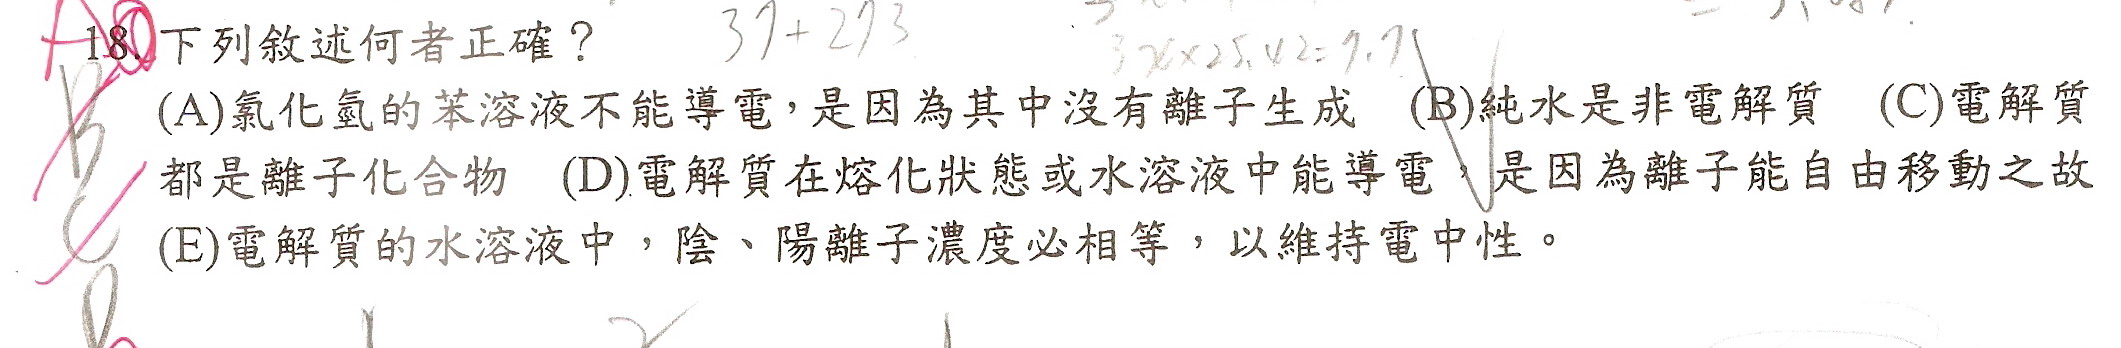 37+273
A 18. 下列敘述何者正確？
(A)氯化氫的苯溶液不能導電，是因為其中沒有離子生成 (B)純水是非電解質 (C)電解質
B
都是離子化合物 (D)電解質在熔化狀態或水溶液中能導電，是因為離子能自由移動之故
C
(E)電解質的水溶液中，陰、陽離子濃度必相等，以維持電中性。
D